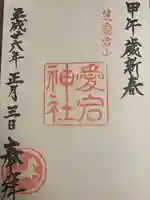 甲午歳新春
芝愛宕山
愛宕
神社
平成廿六年正月三日
奉拝